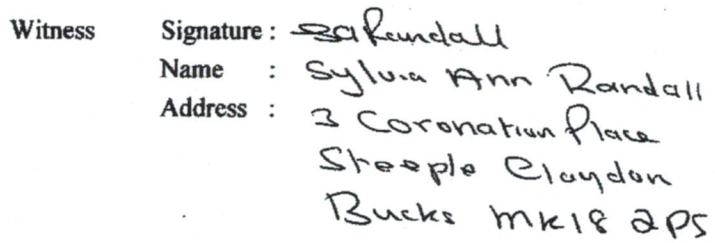 Witness Signature : SA Randall
Name : Sylvia Ann Randall
Address : 3 Coronation Place
Steeple Claydon
Bucks MK18 2PS